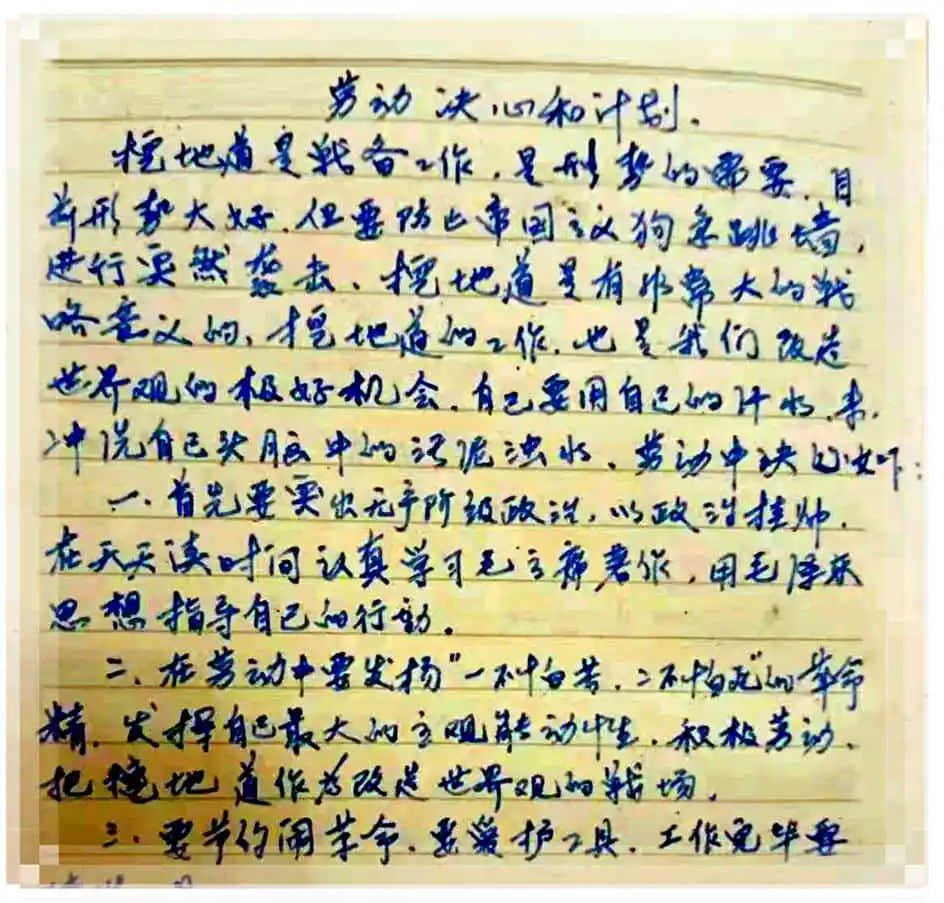 劳动决心和计划.
挖地道是战备工作,是形势的需要,目
前形势大好,但要防止帝国主义狗急跳墙,
进行突然袭击,挖地道是有非常大的战
略意义的,挖地道的工作,也是我们改造
世界观的极好机会,自己要用自己的汗水,来
冲洗自己头脑中的污泥浊水,劳动中决心如下:
一、首先要突出无产阶级政治,以政治挂帅,
在天天读时间认真学习毛主席著作,用毛泽东
思想指导自己的行动。
二、在劳动中要发扬"一不怕苦,二不怕死"的革命
精,发挥自己最大的主观能动性,积极劳动,
把挖地道作为改造世界观的战场,
三、要节约闹革命,要爱护工具,工作完毕要